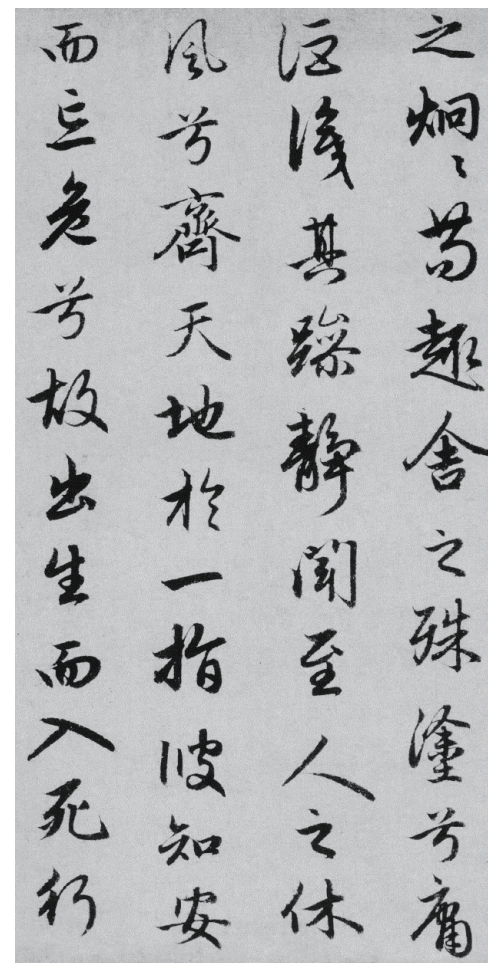 之炯〻苟趣舍之殊塗兮庸
詎識其躁靜聞至人之休
風兮齊天地於一指彼知安
而忘危兮故出生而入死行